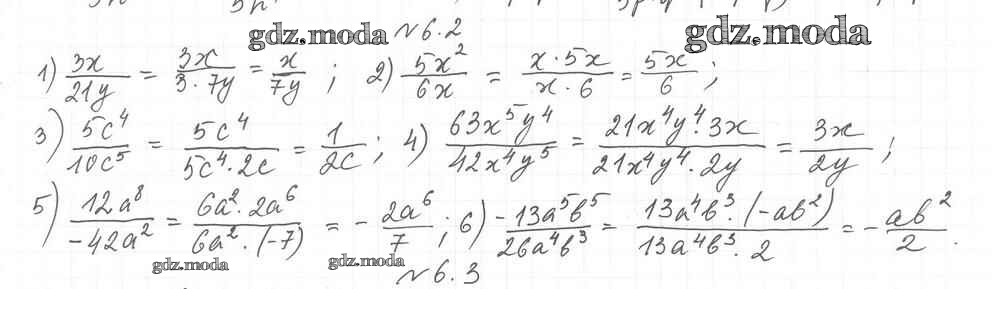 gdz.moda №6.2 gdz.moda
1) 3x/21y = 3x/(3·7y) = x/7y ; 2) 5x²/6x = (x·5x)/(x·6) = 5x/6 ;
3) 5c⁴/10c⁵ = 5c⁴/(5c⁴·2c) = 1/2c ; 4) 63x⁵y⁴/42x⁴y⁵ = (21x⁴y⁴·3x)/(21x⁴y⁴·2y) = 3x/2y ;
5) 12a⁸/-42a² = (6a²·2a⁶)/(6a²·(-7)) = - 2a⁶/7 ; 6) -13a⁵b⁵/26a⁴b³ = (13a⁴b³·(-ab²))/(13a⁴b³·2) = - ab²/2 .
gdz.moda gdz.moda
№6.3